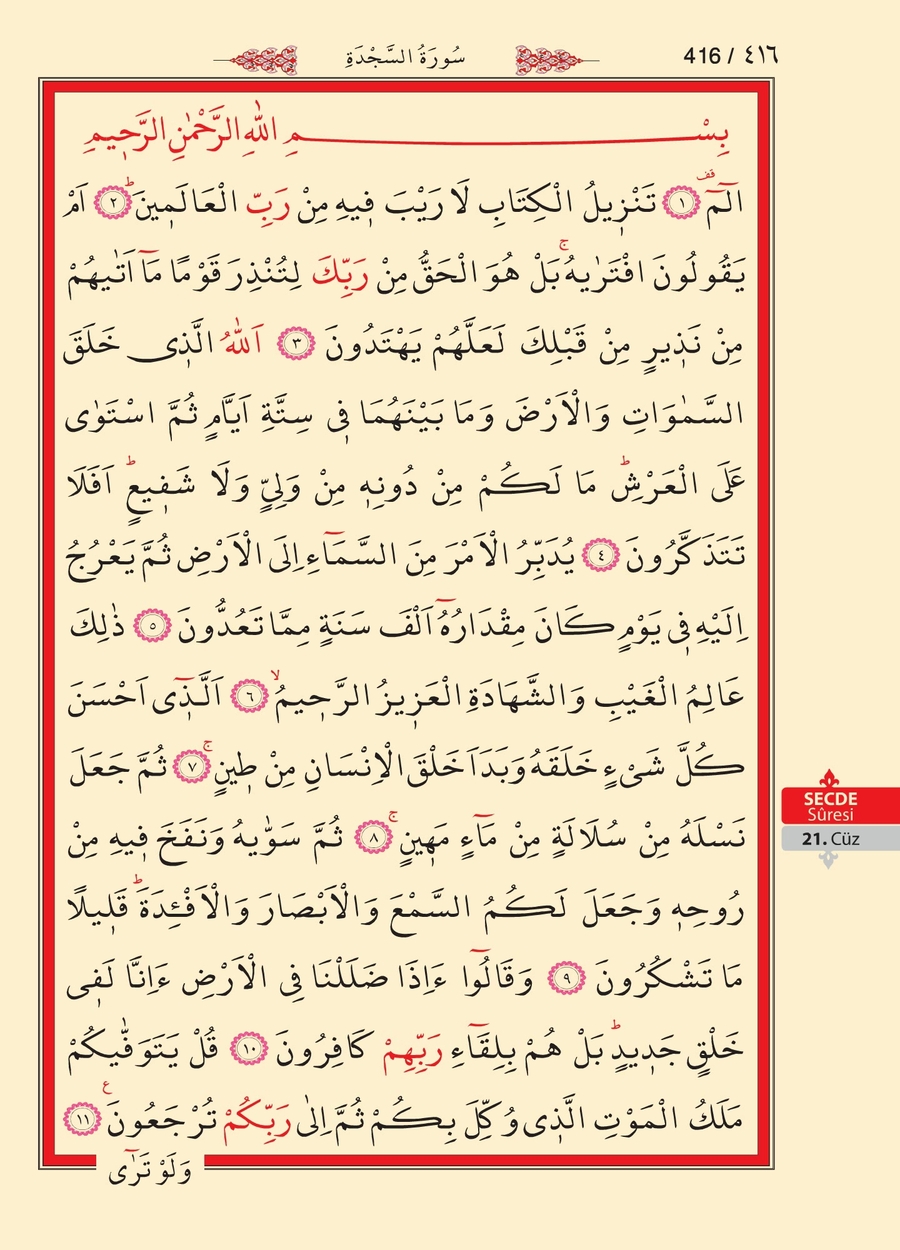 سُورَةُ السَّجْدَةِ
416 / ٤١٦
بِسْمِ اللّٰهِ الرَّحْمٰنِ الرَّحٖيمِ
الٓمٓ ۠ۚ ﴿١﴾ تَنْزٖيلُ الْكِتَابِ لَا رَيْبَ فٖيهِ مِنْ رَبِّ الْعَالَمٖينَؕ ﴿٢﴾ اَمْ
يَقُولُونَ افْتَرٰيهُۚ بَلْ هُوَ الْحَقُّ مِنْ رَبِّكَ لِتُنْذِرَ قَوْمًا مَٓا اَتٰيهُمْ
مِنْ نَذٖيرٍ مِنْ قَبْلِكَ لَعَلَّهُمْ يَهْتَدُونَ ﴿٣﴾ اَللّٰهُ الَّذٖى خَلَقَ
السَّمٰوَاتِ وَالْاَرْضَ وَمَا بَيْنَهُمَا فٖى سِتَّةِ اَيَّامٍ ثُمَّ اسْتَوٰى
عَلَى الْعَرْشِؕ مَا لَكُمْ مِنْ دُونِهٖ مِنْ وَلِىٍّ وَلَا شَفٖيعٍؕ اَفَلَا
تَتَذَكَّرُونَ ﴿٤﴾ يُدَبِّرُ الْاَمْرَ مِنَ السَّمَٓاءِ اِلَى الْاَرْضِ ثُمَّ يَعْرُجُ
اِلَيْهِ فٖى يَوْمٍ كَانَ مِقْدَارُهُٓ اَلْفَ سَنَةٍ مِمَّا تَعُدُّونَ ﴿٥﴾ ذٰلِكَ
عَالِمُ الْغَيْبِ وَالشَّهَادَةِ الْعَزٖيزُ الرَّحٖيمُۙ ﴿٦﴾ اَلَّذٖٓى اَحْسَنَ
كُلَّ شَىْءٍ خَلَقَهُ وَبَدَاَ خَلْقَ الْاِنْسَانِ مِنْ طٖينٍۚ ﴿٧﴾ ثُمَّ جَعَلَ
نَسْلَهُ مِنْ سُلَالَةٍ مِنْ مَٓاءٍ مَهٖينٍۚ ﴿٨﴾ ثُمَّ سَوّٰيهُ وَنَفَخَ فٖيهِ مِنْ
رُوحِهٖ وَجَعَلَ لَكُمُ السَّمْعَ وَالْاَبْصَارَ وَالْاَفْـِٔدَةَؕ قَلٖيلًا
مَا تَشْكُرُونَ ﴿٩﴾ وَقَالُٓوا ءَاِذَا ضَلَلْنَا فِى الْاَرْضِ ءَاِنَّا لَفٖى
خَلْقٍ جَدٖيدٍؕ بَلْ هُمْ بِلِقَٓاءِ رَبِّهِمْ كَافِرُونَ ﴿١٠﴾ قُلْ يَتَوَفّٰيكُمْ
مَلَكُ الْمَوْتِ الَّذٖى وُكِّلَ بِكُمْ ثُمَّ اِلٰى رَبِّكُمْ تُرْجَعُونَ ع ﴿١١﴾
وَلَوْ تَرٰٓى
SECDE
Sûresi
21. Cüz